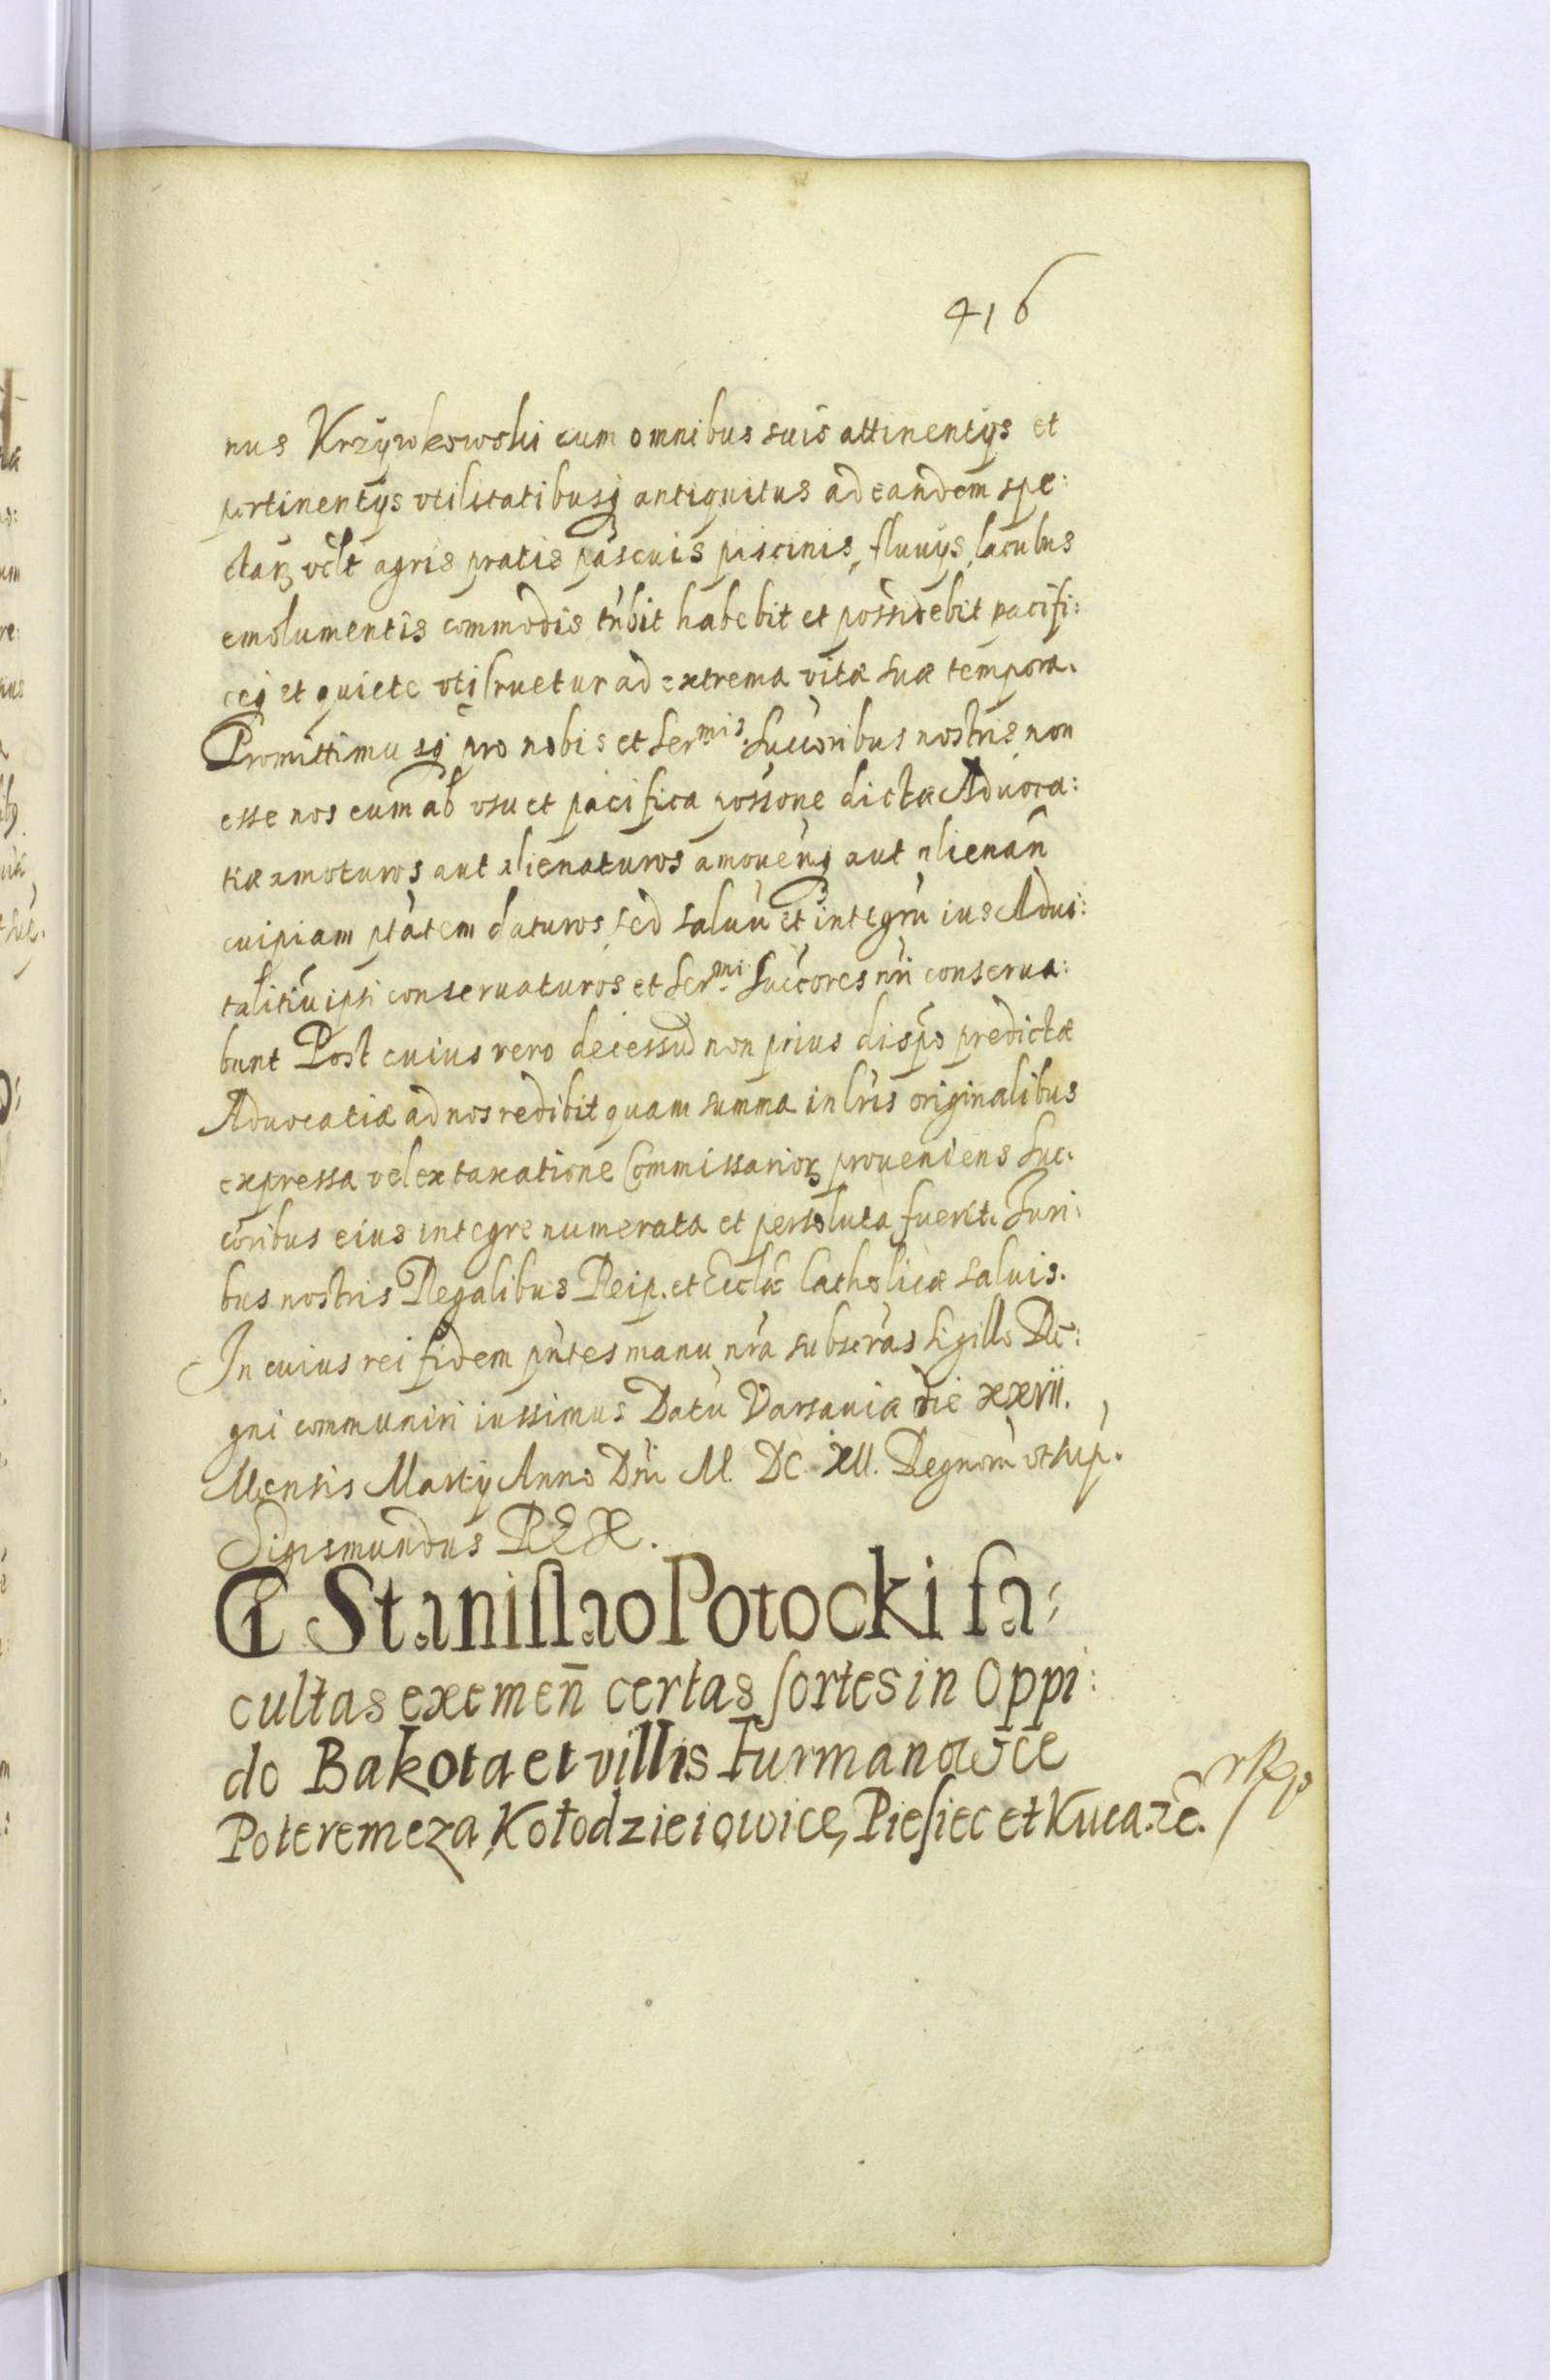 416
nus Krzywkowski cum omnibus suis attinentÿs et
pertinentÿs vtilitatibusq antiquitus ad eandem spe:
ctan̄ velt agris pratis pascuis piscinis, fluuÿs, lacubus
emolumentis commodis tn̄bit habebit et possidebit pacifi:
ceq et quiete vtifruetur ad extrema vitæ suæ tempora.
Promittimusq pro nobis et Ser:mis Succōribus nostris non
esse nos eum ab vsu et pacifica possōne dictæ Aduoca:
tiæ amoturos aut alienaturos amouen̄q aut alienan̄
cuipiam ptātem daturos, sed saluū et integrū ius Adui:
talitiū ipsi conseruaturos et Ser:mi Succōres nr̄i conserua:
bunt Post cuius vero decessū non prius dispō predictæ
Aduocatiæ ad nos redibit quam summa in lr̄is originalibus
expressa vel ex taxatione Commissarior̄ proueniens Suc:
cōribus eius integre numerata et persoluta fuerit. Juri:
bus nostris Regalibus Reip. et Eccl̄æ Catholicæ saluis.
In cuius rei fidem pn̄tes manu nr̄a subscr̄as sigillo Re:
gni communiri iussimus Datū Varsauiæ die xxvii.
Mensis Martÿ Anno Dn̄i M. DC. XII. Regnorū vt sup.
Sigismundus REX.
G Stanislao Potocki fa:
cultas eximen̄ certas sortes in Oppi:
do Bakota et villis Furmanowce
Poteremeza, Kołodzieiowice, Piesiec et Kucaze.